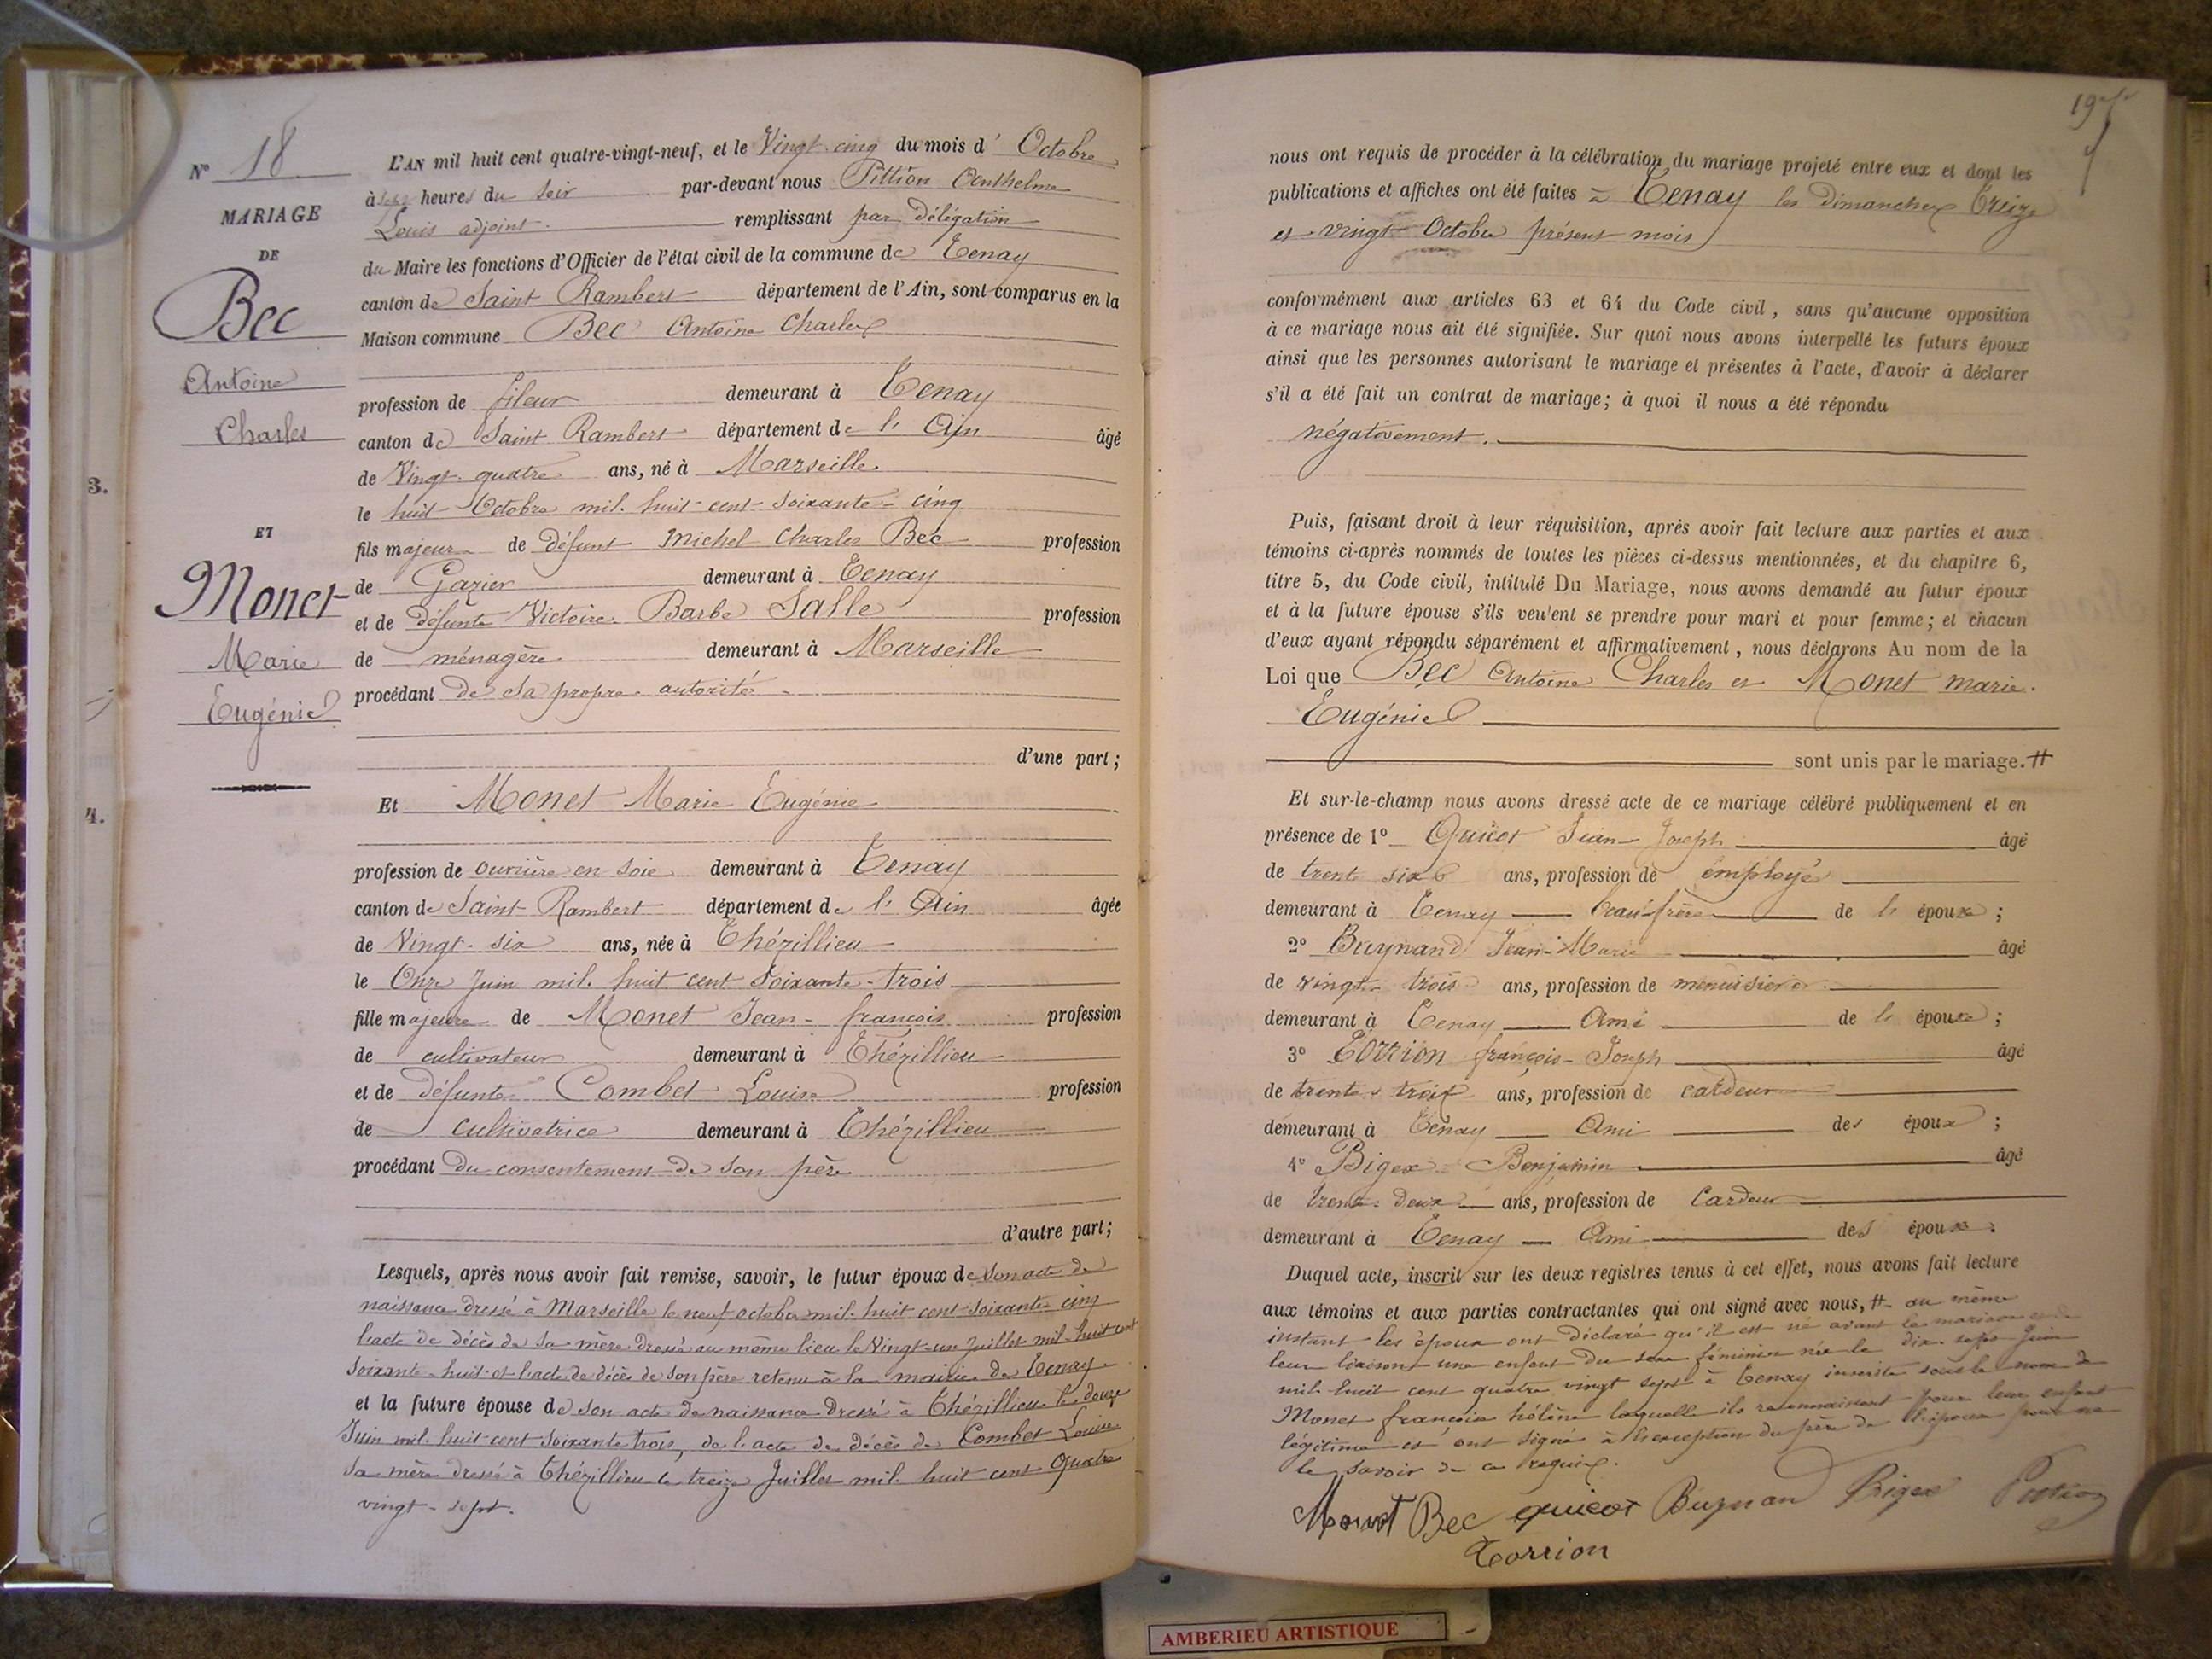 N° 18
MARIAGE
DE
Bec
Antoine
Charles
ET
Monet
Marie
Eugénie
3.
4.
L'AN mil huit cent quatre-vingt-neuf, et le Vingt-cinq du mois d' Octobre
à sept heures du soir par-devant nous Pittion Anthelme
Louis adjoint remplissant par délégation
du Maire les fonctions d'Officier de l'état civil de la commune de Tenay
canton de Saint Rambert département de l'Ain, sont comparus en la
Maison commune Bec Antoine Charles
profession de fileur demeurant à Tenay
canton de Saint Rambert département de l'Ain âgé
de Vingt-quatre ans, né à Marseille
le huit Octobre mil huit cent soixante-cinq
fils majeur de défunt Michel Charles Bec profession
de Gazier demeurant à Tenay
et de défunte Victoire Barbe Salle profession
de ménagère demeurant à Marseille
procédant de sa propre autorité
d'une part ;
Et Monet Marie Eugénie
profession de ouvrière en soie demeurant à Tenay
canton de Saint Rambert département de l'Ain âgée
de Vingt-six ans, née à Thézillieu
le Onze Juin mil huit cent soixante-trois
fille majeure de Monet Jean-françois profession
de cultivateur demeurant à Thézillieu
et de défunte Combet Louise profession
de cultivatrice demeurant à Thézillieu
procédant du consentement de son père
d'autre part;
Lesquels, après nous avoir fait remise, savoir, le futur époux de son acte de
naissance dressé à Marseille le neuf octobre mil huit cent soixante-cinq
l'acte de décès de sa mère dressé au même lieu le Vingt-un Juillet mil huit cent
soixante-huit et l'acte de décès de son père retenu à la mairie de Tenay
et la future épouse de son acte de naissance dressé à Thézillieu le douze
Juin mil huit cent soixante trois, de l'acte de décès de Combet Louise
sa mère dressé à Thézillieu le treize Juillet mil huit cent quatre
vingt-sept.
nous ont requis de procéder à la célébration du mariage projeté entre eux et dont les
publications et affiches ont été faites à Tenay les dimanches Treize
et vingt Octobre présent mois
conformément aux articles 63 et 64 du Code civil, sans qu'aucune opposition
à ce mariage nous ait été signifiée. Sur quoi nous avons interpellé les futurs époux
ainsi que les personnes autorisant le mariage et présentes à l'acte, d'avoir à déclarer
s'il a été fait un contrat de mariage; à quoi il nous a été répondu
négativement.
Puis, faisant droit à leur réquisition, après avoir fait lecture aux parties et aux
témoins ci-après nommés de toutes les pièces ci-dessus mentionnées, et du chapitre 6,
titre 5, du Code civil, intitulé Du Mariage, nous avons demandé au futur époux
et à la future épouse s'ils veulent se prendre pour mari et pour femme; et chacun
d'eux ayant répondu séparément et affirmativement, nous déclarons Au nom de la
Loi que Bec Antoine Charles et Monet marie
Eugénie
sont unis par le mariage. #
Et sur-le-champ nous avons dressé acte de ce mariage célébré publiquement et en
présence de 1° Quicot Jean-Joseph âgé
de trente six ans, profession de employé
demeurant à Tenay beau frère de l' époux ;
2° Buynand Jean-Marie âgé
de vingt-trois ans, profession de menuisier
demeurant à Tenay Ami de l' époux ;
3° Torrion françois-Joseph âgé
de trente-trois ans, profession de cardeur
demeurant à Tenay Ami des époux ;
4° Bigex Benjamin âgé
de trente-deux ans, profession de Cardeur
demeurant à Tenay Ami des époux.
Duquel acte, inscrit sur les deux registres tenus à cet effet, nous avons fait lecture
aux témoins et aux parties contractantes qui ont signé avec nous, # au même
instant les époux ont déclaré qu'il est né avant le mariage et de
leur liaison une enfant du sexe féminin née le dix-sept Juin
mil huit cent quatre vingt sept à Tenay inscrite sous le nom de
Monet françoise hélène laquelle ils reconnaissent pour leur enfant
légitime et ont signé à l'exception du père de l'épouse pour ne
le savoir de ce requis.
Monet Bec quicot Buynan Bigex Pittion
Torrion
AMBERIEU ARTISTIQUE